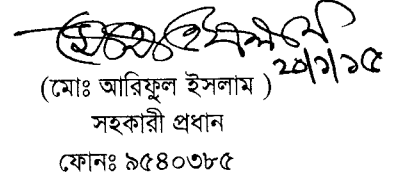 ২০/১/১৫
(মোঃ আরিফুল ইসলাম )
সহকারী প্রধান
ফোনঃ ৯৫৪০৩৮৫